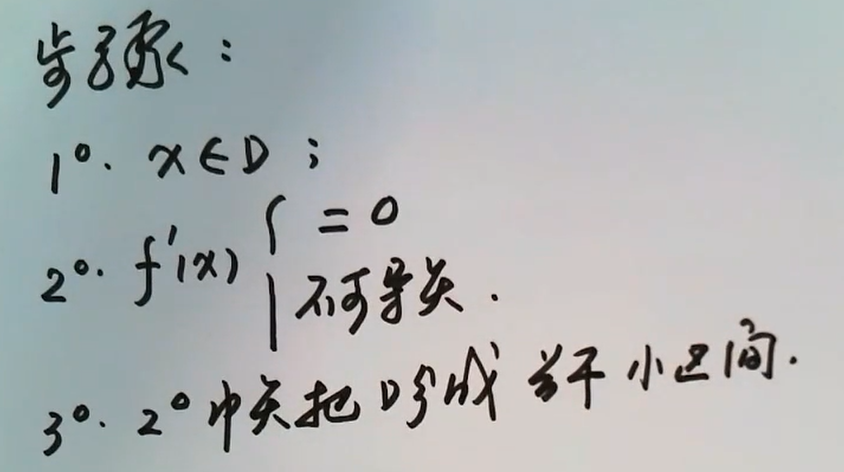 步骤：
1°. x∈D；
2°. f'(x) { = 0
不可导点.
3°. 2°中点把D分成若干小区间.